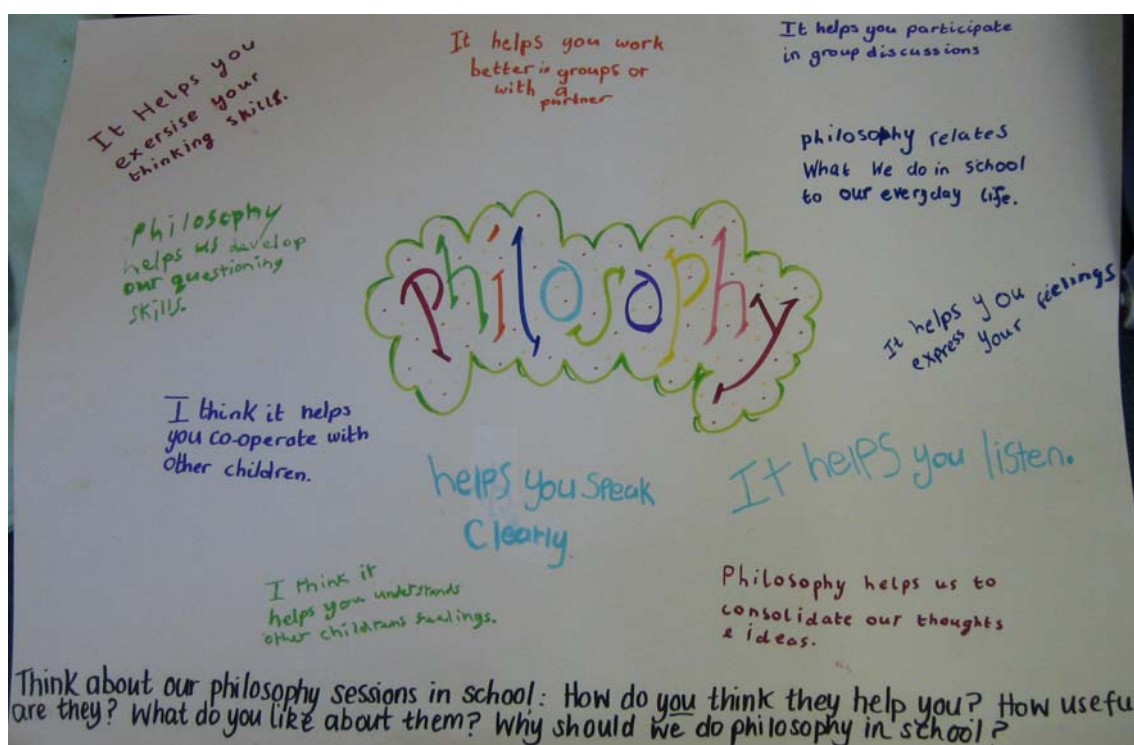 It Helps you
exersise your
thinking skills.
It helps you work
better in groups or
with a
partner
It helps you participate
in group discussions
philosophy relates
What We do in school
to our everyday life.
Philosophy
helps us develop
our questioning
skills.
philosophy
It helps you
express your feelings
I think it helps
you co-operate with
other children.
helps you speak
Clearly.
It helps you listen.
I think it
helps you understands
other childrens feelings.
Philosophy helps us to
consolidate our thoughts
& ideas.
Think about our philosophy sessions in school: How do you think they help you? How usefu
are they? What do you like about them? Why should we do philosophy in school?